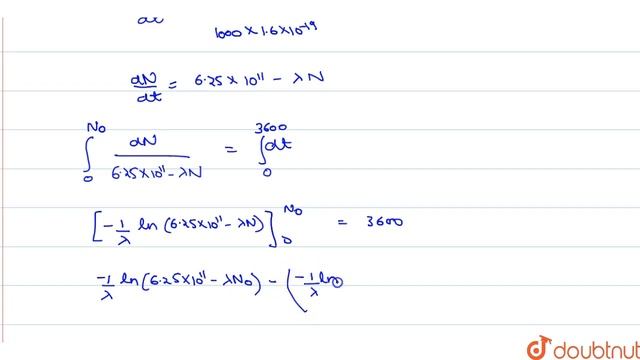 1000 × 1.6×10⁻¹⁹
dN/dt = 6.25 × 10¹¹ - λN
∫₀^N₀ dN/(6.25×10¹¹ - λN) = ∫₀^3600 dt
[-1/λ ln (6.25×10¹¹ - λN)]₀^N₀ = 3600
-1/λ ln(6.25×10¹¹ - λN₀) - (-1/λ ln
doubtnut